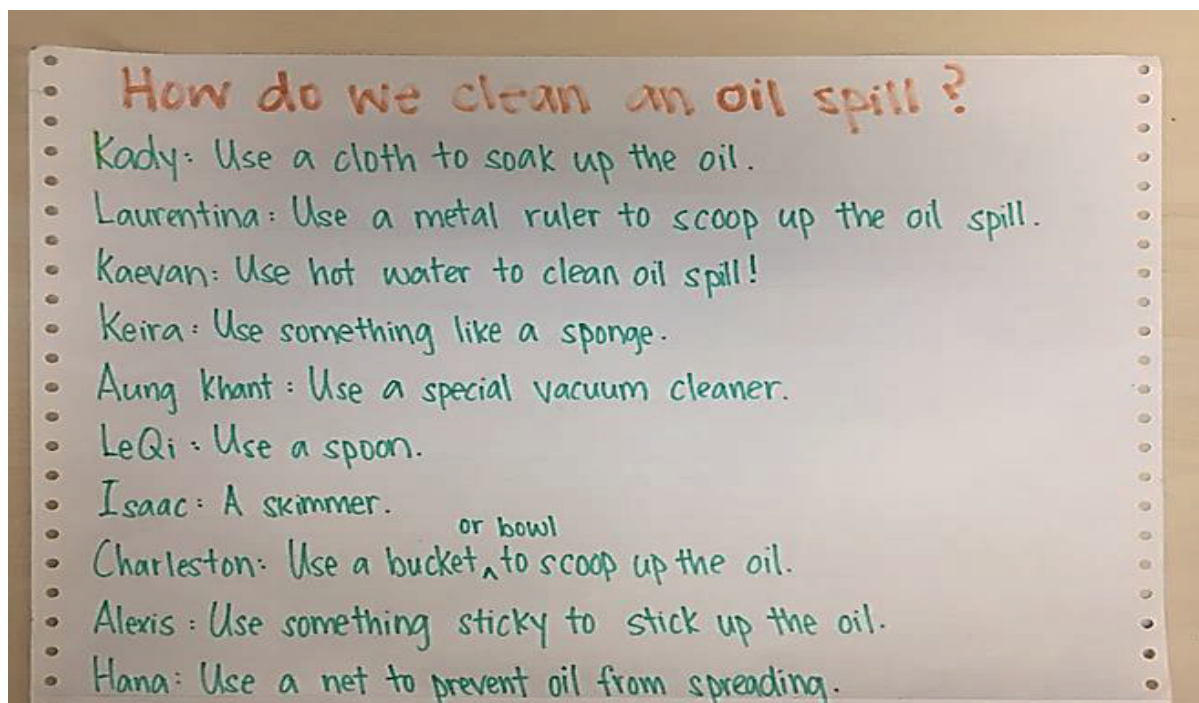 How do we clean an oil spill?
Kady: Use a cloth to soak up the oil.
Laurentina: Use a metal ruler to scoop up the oil spill.
Kaevan: Use hot water to clean oil spill!
Keira: Use something like a sponge.
Aung Khant: Use a special vacuum cleaner.
LeQi: Use a spoon.
Isaac: A skimmer.
or bowl
Charleston: Use a bucket ^ to scoop up the oil.
Alexis: Use something sticky to stick up the oil.
Hana: Use a net to prevent oil from spreading.